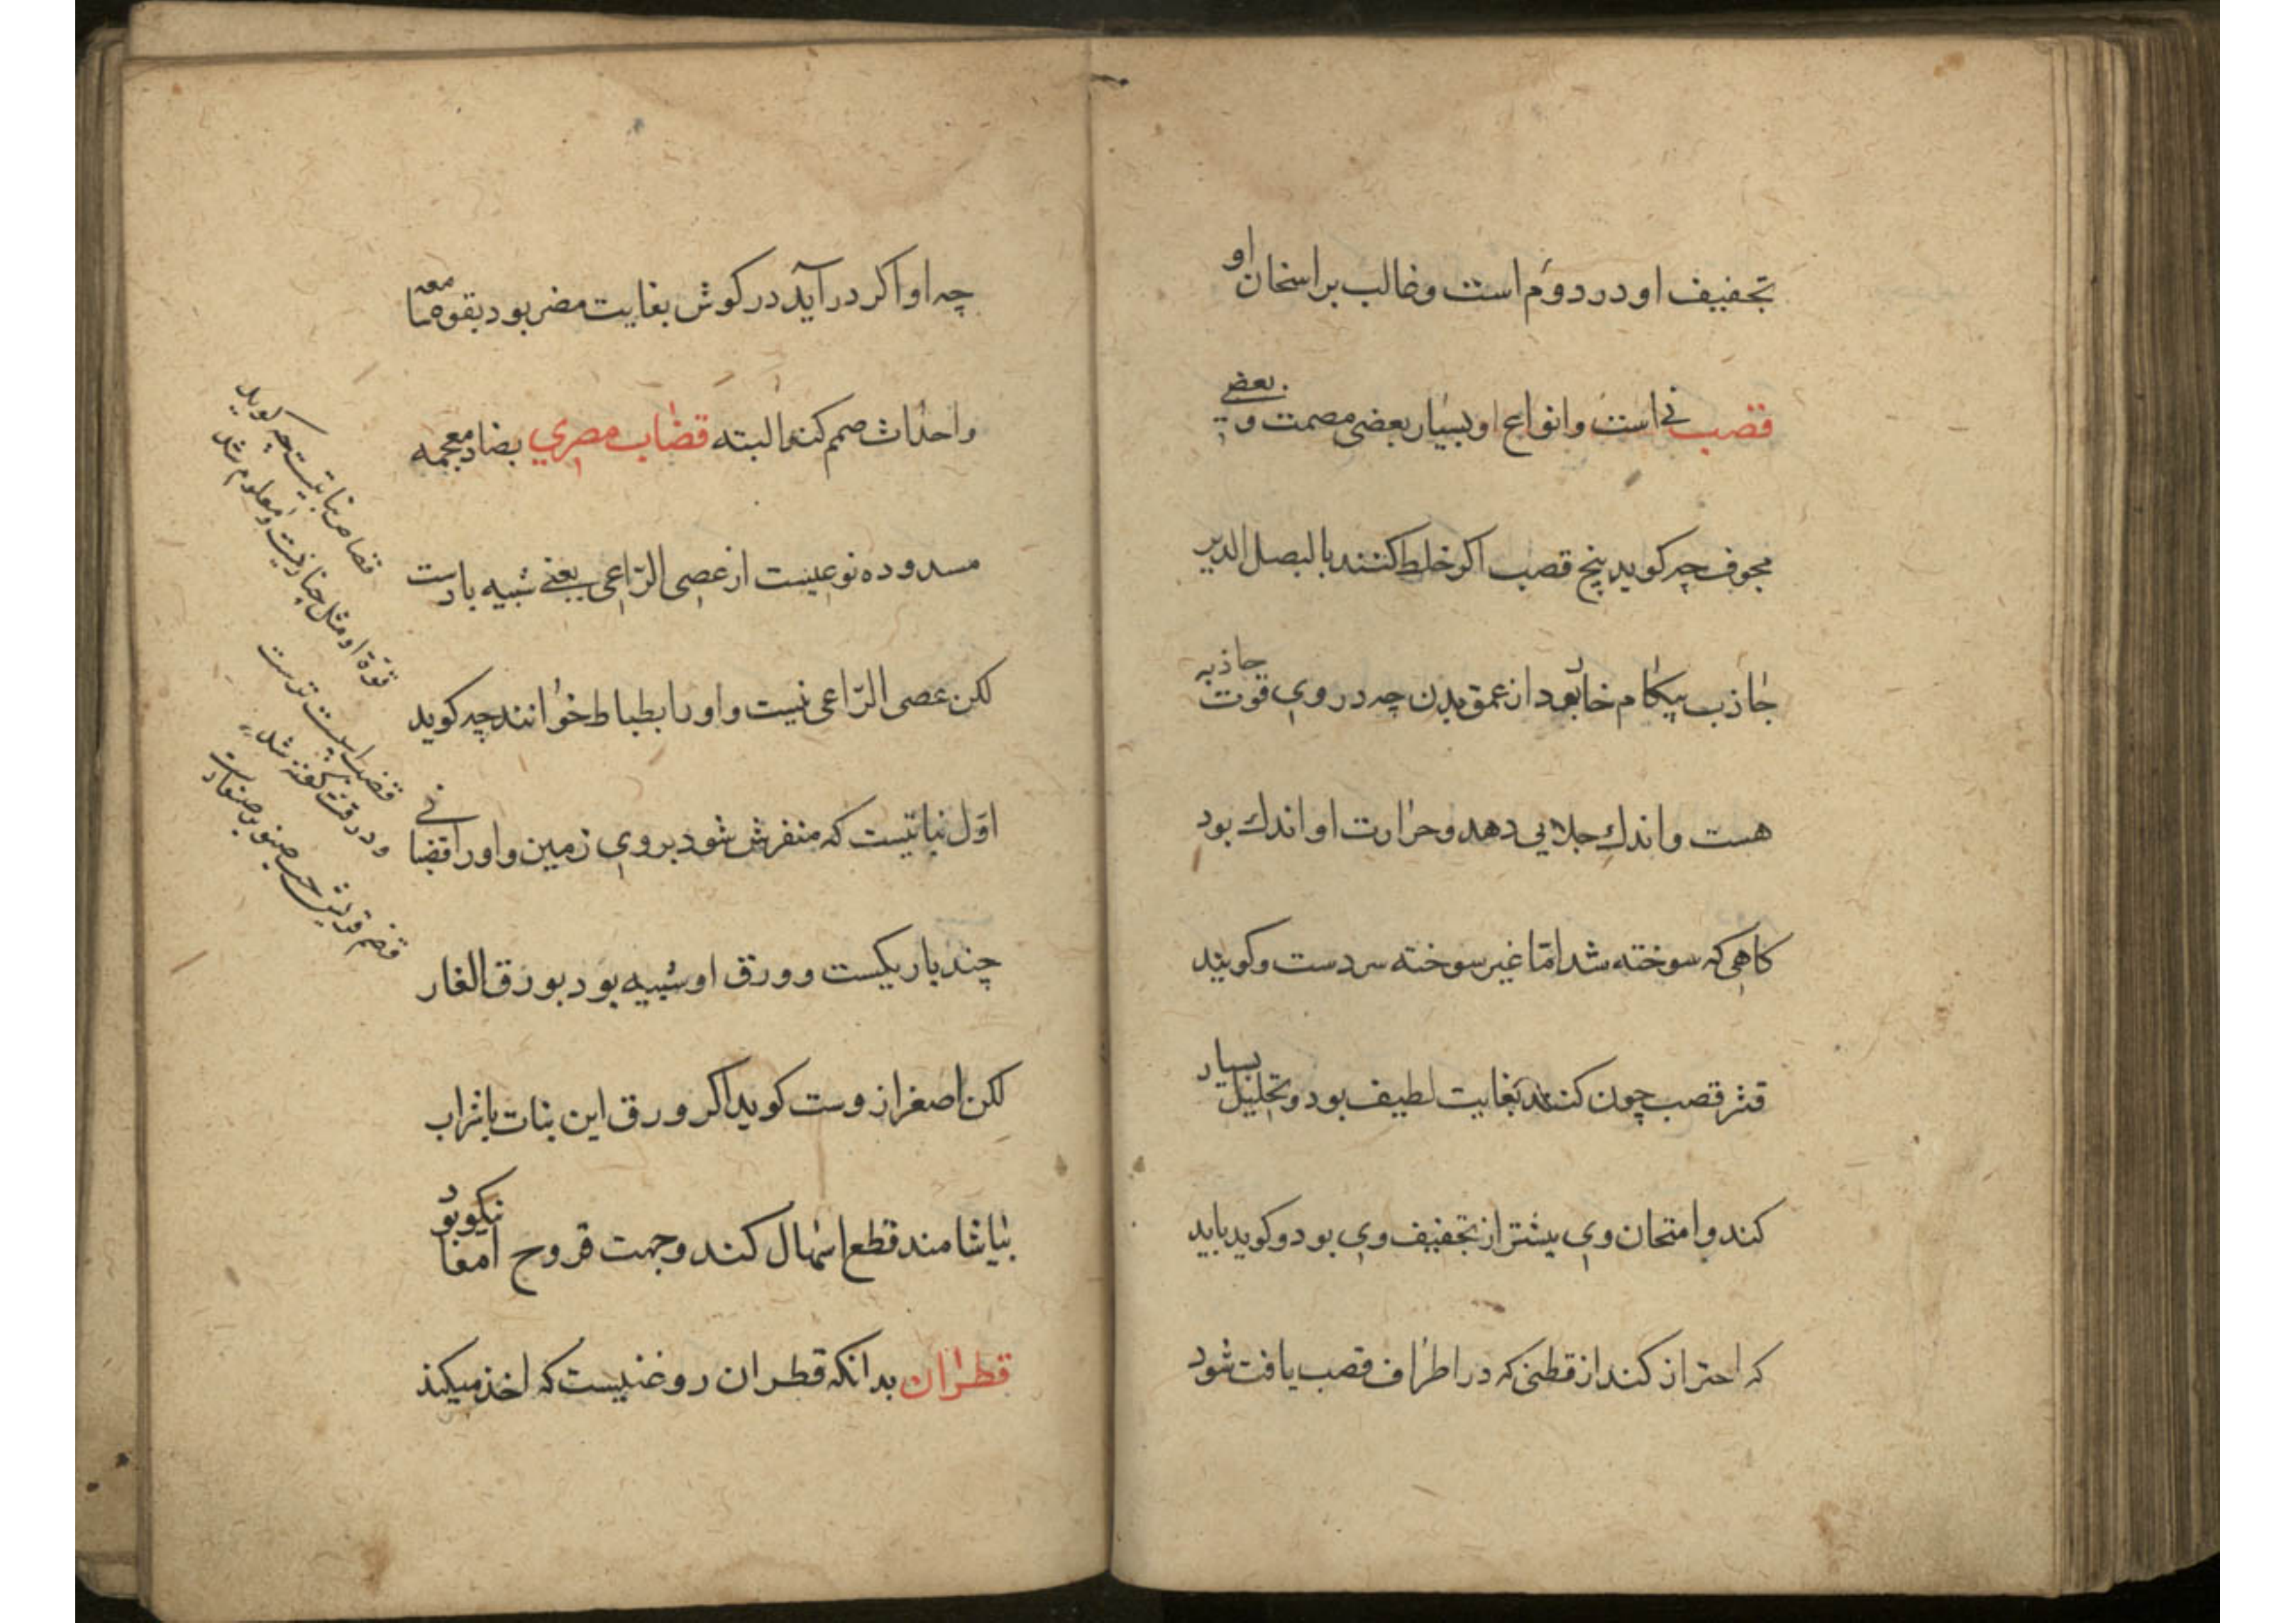 تجفیف او در دوم است و غالب بر اسخان او
قصب نی است و انواع او بسیار بعضی مصمت و بعضی
مجوف چه کوید بیخ قصب اکر خلط کنند با البصل الدبر
جاذب پیکام خار بود از عمق بدن چه در وی قوت جاذبه
هست و اندك جلایی دهد و حرارت او اندك بود
کاهی که سوخته شد امّا غیر سوخته سردست و کویند
قشر قصب چون کنند بغایت لطیف بود و تحلیل بسیار
کند و امتحان وی بیشتر از تجفیف وی بود و کوید باید
که احتراز کند از قطنی که در اطراف قصب یافت شود
چه او اکر در آید در کوش بغایت مضر بود بقوه سامعه
و احداث صمم کند البته قضاب مصری بضاد معجمه
مسدوده نوعیست از عصی الرّاعی یعنی شبیه باوست
لکن عصی الرّاعی نیست و او را بطباط خوانند چه کوید
اوّل نباتیست که منفرش شود بر روی زمین و او را قضبانی
چند باریکست و ورق او شبیه بود بورق الغار
لکن اصغر از وست کوید اکر ورق این نبات با شراب
بیاشامند قطع اسهال کند و جهت قروح امعا نیکو بود
قطران بدانکه قطران روغنیست که اخذ میکنند
قصاص نباتیست چه کوید
قوّة او مثل و معلوم شد
قضب اسپست ترست
و در قت کفته شد
قضم قریش حب صنوبر صغارست